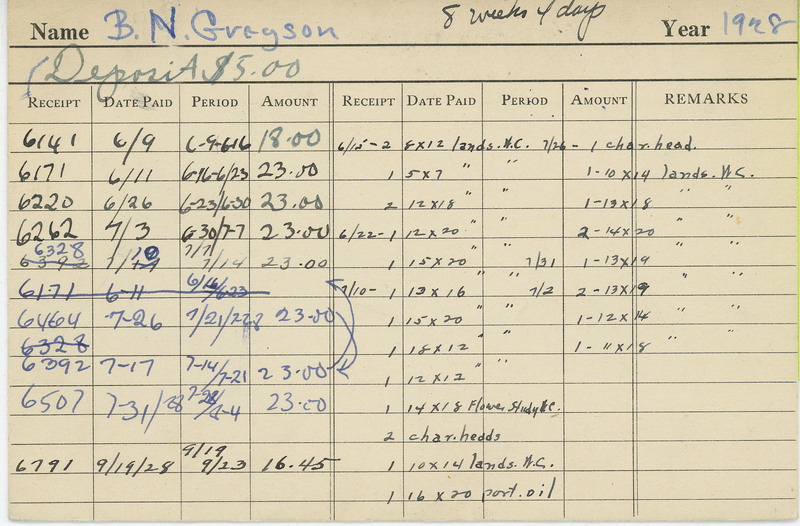 8 weeks 4 days
Name B. N. Greyson Year 1928
Deposit $5.00
RECEIPT DATE PAID PERIOD AMOUNT RECEIPT DATE PAID PERIOD AMOUNT REMARKS
6141 6/9 6-9-6/16 18.00 6/15-2 8x12 lands. W.C. 7/26 - 1 char. head.
6171 6/11 6-16-6/23 23.00 1 5x7 " " 1-10x14 lands. W.C.
6220 6/26 6-23/6-30 23.00 2 12x18 " " 1-13x18 " "
6262 7/3 6-30/7-7 23.00 6/22-1 12x20 " " 2-14x20 " "
6328 7/10 7/7
6392 7/14 23.00 1 15x20 " " 7/31 1-13x19 " "
6171 6-11 6/16/6-23 7/10- 1 13x16 " " 7/2 2-13x19 " "
6464 7-26 7/21/7/28 23.00 1 15x20 " " 1-12x14 " "
6328 1 18x12 " " 1-11x18 " "
6392 7-17 7-14/7-21 23.00 1 12x12 " "
6507 7-31/28 7-28/8-4 23.00 1 14x18 Flower Study W.C.
2 char. heads
6791 9/19/28 9/19 9/23 16.45 1 10x14 lands. W.C.
1 16x20 port. oil